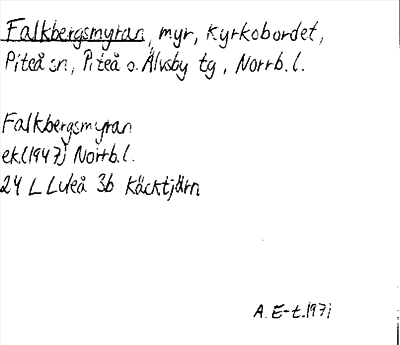 Falkbergsmyran, myr, Kyrkobordet,
Piteå sn, Piteå o. Älvsby tg, Norrb.l.
Falkbergsmyran
ek(1947) Norrb.l.
24 L Luleå 3b Käcktjärn
A. E-t. 1971